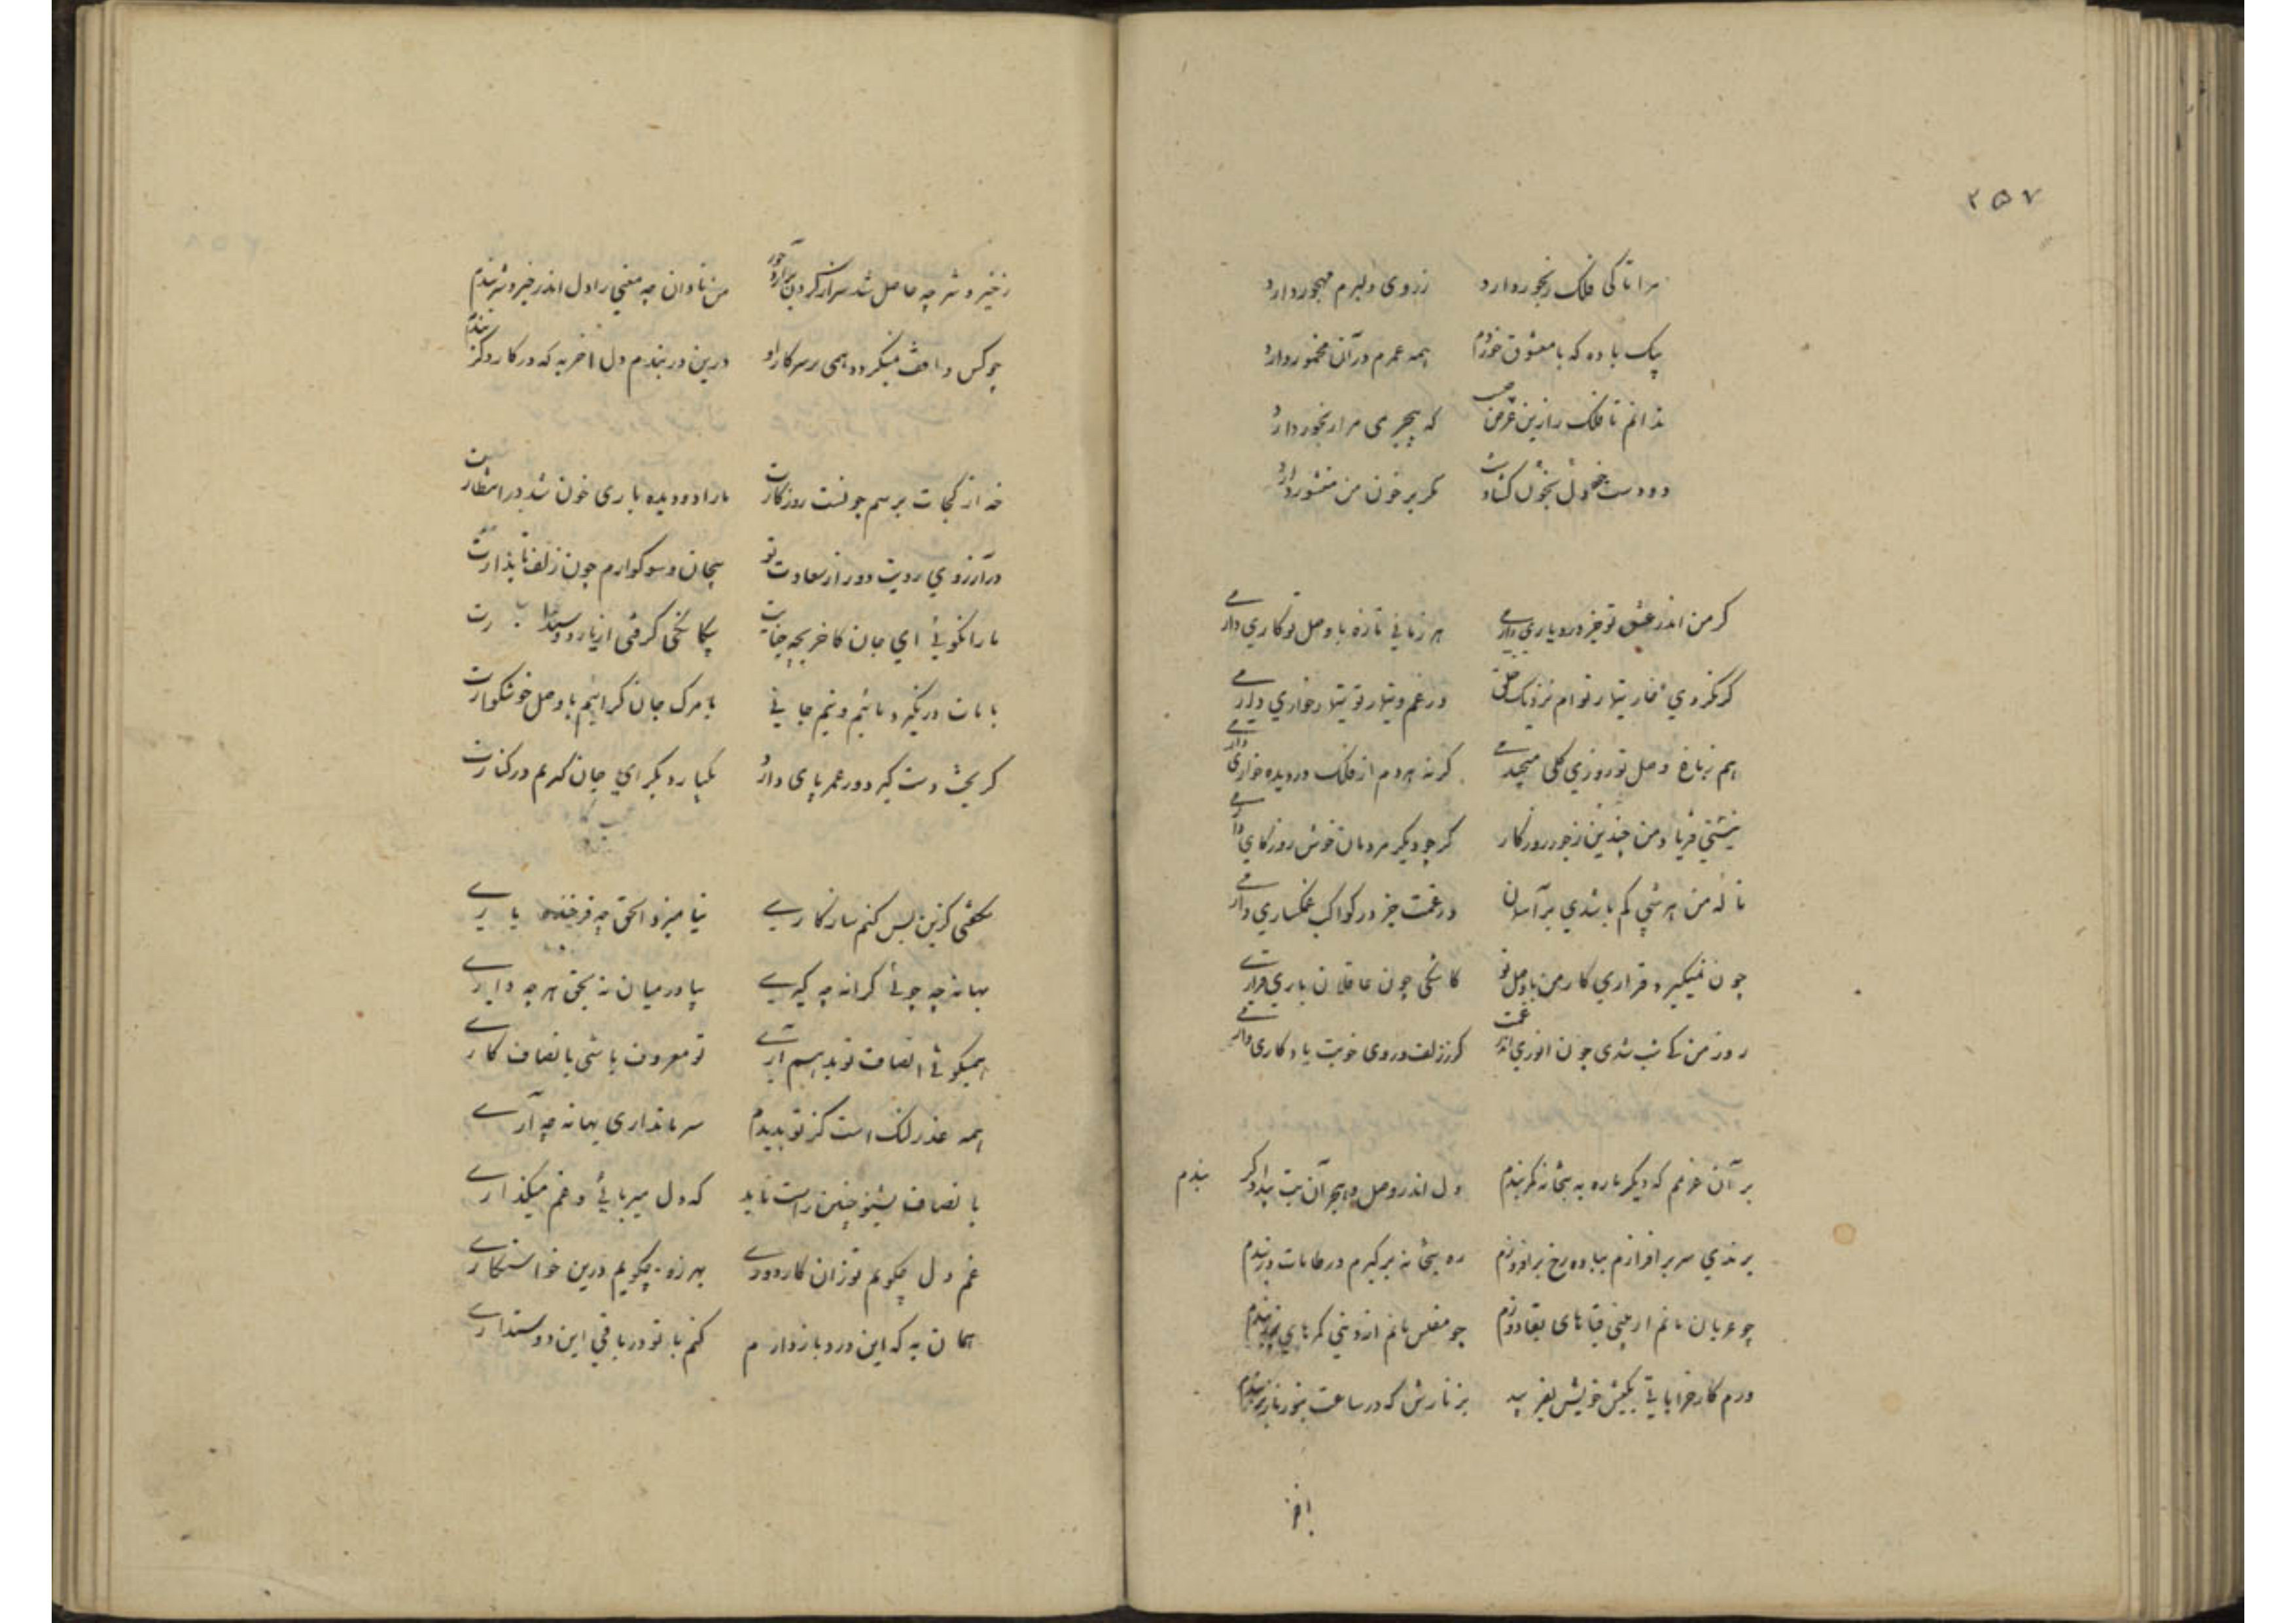 ۲۵۷
مرا تا کی فلک رنجور دارد زروی دلبرم مهجور دارد
بیک باده که با معشوق خوردم همه عمرم در آن مخمور دارد
ندانم تا فلک را زین غرض چیست که بیجرمی مرا رنجور دارد
دو دست خود بخون دل گشادست مگر بر خون من منشور دارد
گر من اندر عشق تو جز درد یاری دارمی هر زمانی تازه با وصل تو کاری دارمی
گر نکردی خار تیمار توام نزدیک خلق در غم و تیمار تو تیمار خواری دارمی
هم ز باغ وصل تو روزی گلی میچیدمی گر نه هردم از فلک در دیده خاری دارمی
نیستی فریاد من چندین ز جور روزگار گر چو دیگر مردمان خوش روزگاری دارمی
نالهٔ من هر شبی کم باشدی بر آسمان در غمت جز در کواکب غمگساری دارمی
چون نمیگیرد قراری کار من با وصل تو کاشکی چون عاقلان باری قراری دارمی
روز من کی شب شدی چون انوری اندر غمت گر ز زلف و روی خوبت یادگاری دارمی
بر آن عزمم که دیگر باره به میخانه کمر بندم دل اندر وصل و هجر آن بت بیدادگر بندم
برندی سر برافرازم بباده رخ برافروزم ره میخانه برگیرم در طامات بربندم
چو عریان مانم از هستی قباهای بقا دوزم چو مفلس مانم از دینی کمرهای بزر بندم
ورم کار خراباتی بکیش خویش بفریبد بزنارش که در ساعت چو زنارش بندم
ز خیر و شر چه حاصل شد سرافراز گردون را من نادان چه معنی را دل اندر خیر و شر بندم
چو کس واقف نمیگردد همی بر سر کار او درین در بندم دل آخر به که در کار دگر بندم
خه از کجات پرسم چونست روزگارت ما را دو دیده باری خون شد در انتظارت
در آرزوی رویت دور از سعادت تو پیچان و سوگوارم چون زلف تابدارت
ما را نگوئی ای جان کاخر بچه جنایت بیگانگی گرفتی از یار دوستدارت
با مات در نگیرد مائیم و نیم جانی یا مرگ جان گرانیم یا وصل خوشگوارت
گر بخت دست گیرد ور عمر پای دارد یکبار دیگر ای جان گیرم در کنارت
نگفتی کزین پس کنم سازگاری نیامیزد الحق چه فرخنده یاری
بهانه چه جوئی کرانه چه گیری بیا در میان نه بحق هر چه داری
همیگوئی انصاف تو بدهم آری تو معروف باشی بانصاف کاری
همه عذر لنگ است کز تو بدیدم سر ما نداری بهانه چه آری
بانصاف بشنو چنین راست ناید که دل میربائی و غم میگذاری
غم دل چگویم تو زان کار دوری بهرزه چگویم درین خواستگاری
همان به که این درد باز دارم کنم با تو در باقی این دوستداری